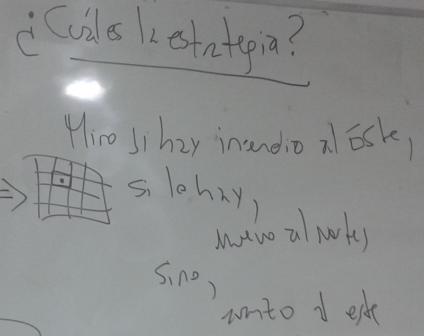 ¿Cuál es la estrategia?
Miro si hay incendio al Este,
si lo hay,
muevo al norte,
sino,
al este